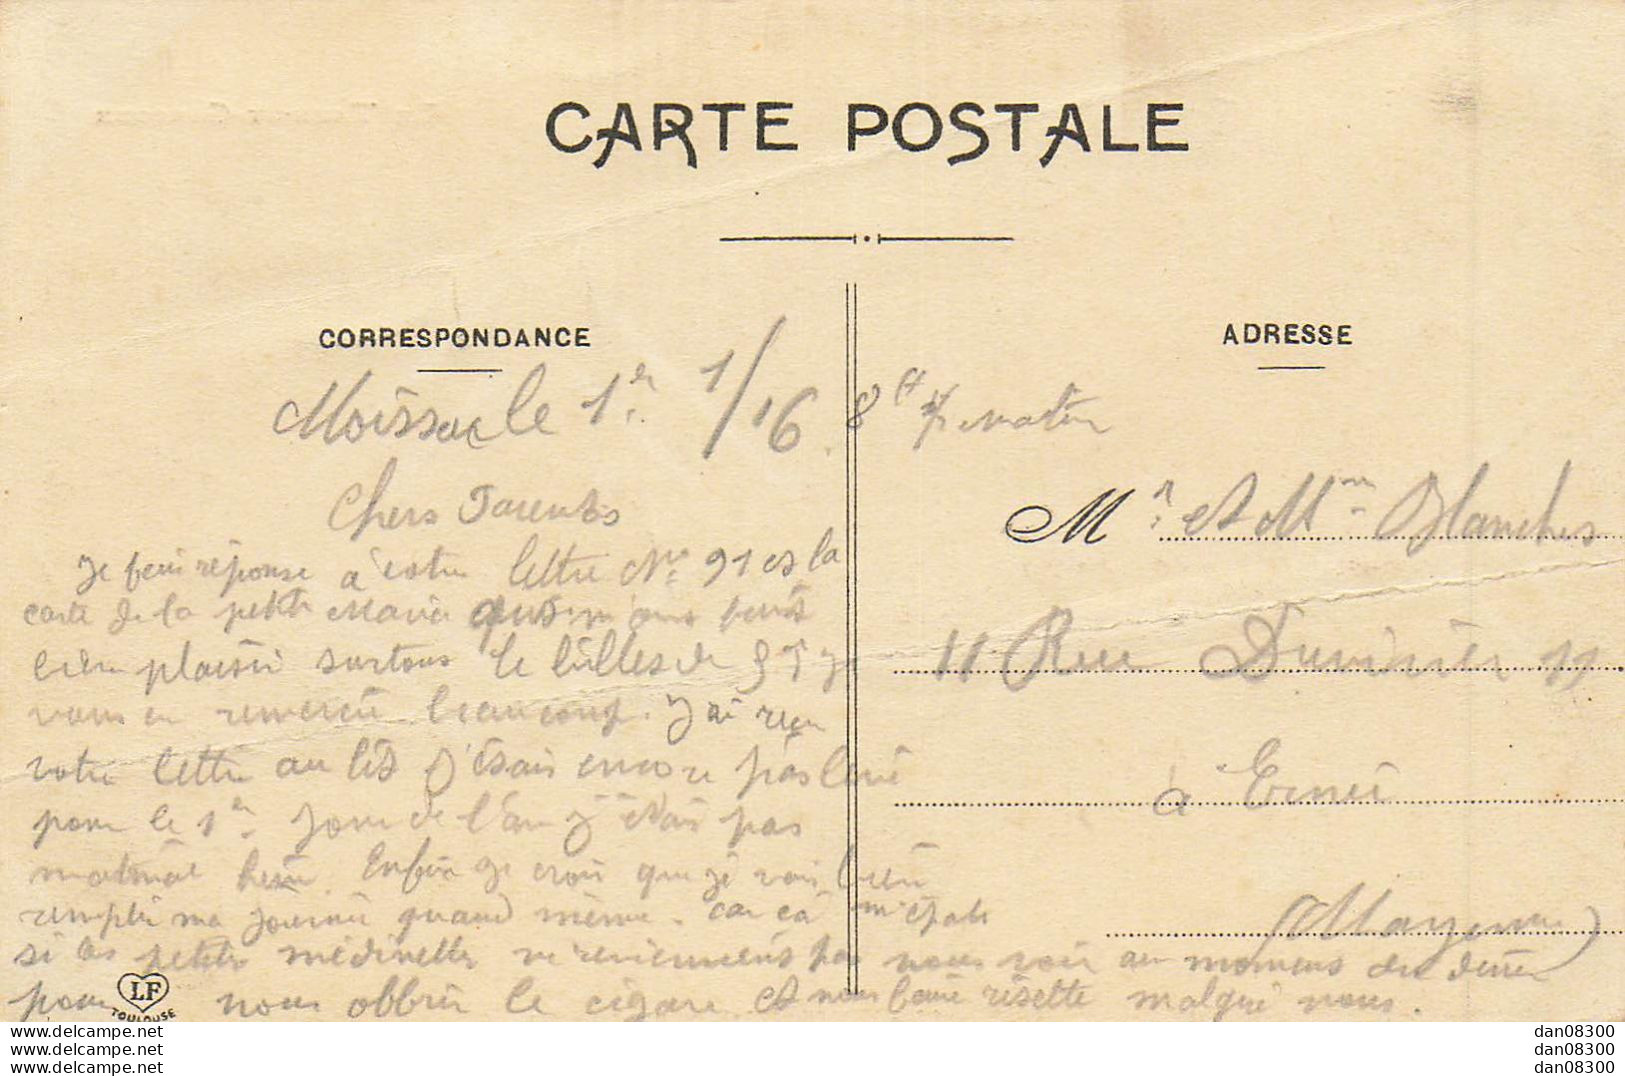 CARTE POSTALE
CORRESPONDANCE
ADRESSE
Moissac le 1er 1/16. 8H du matin
Chers Parents
Je fais réponse à votre lettre No 91 et la
carte de la petite Maria qui m'ons fait
bien plaisir surtous le billes de 5F je
vous en remercie beaucoup. J'ai reçu
votre lettre au lit j'étais encore pas levé
pour le 1er jour de l'an j'étais pas
matinal hein. Enfin je crois que je vais bien
remplir ma journée quand même. Car ça m'épate
si les petites médinettes ne reviennent pas nous voir au moment du diner
pour nous obbrir le cigare et nous faire risette malgré nous.
Mr et Mme Blanches
11 Rue 11
à Ernée
(Mayenne)
LF
TOULOUSE
www.delcampe.net
www.delcampe.net
www.delcampe.net
dan08300
dan08300
dan08300